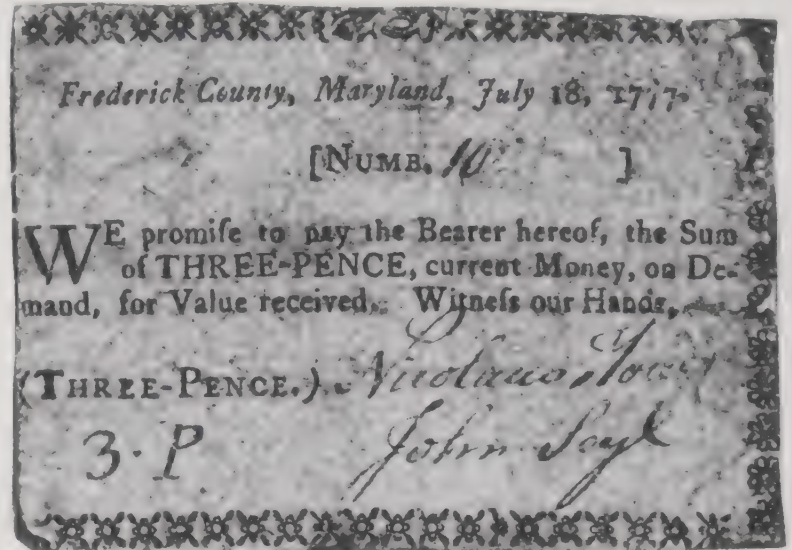 Frederick County, Maryland, July 18, 1777.
[NUMB. 10 ]
WE promiſe to pay the Bearer hereof, the Sum
of THREE-PENCE, current Money, on De-
mand, for Value received. Witneſs our Hands,
(THREE-PENCE.) Nicolaus
John
3. P